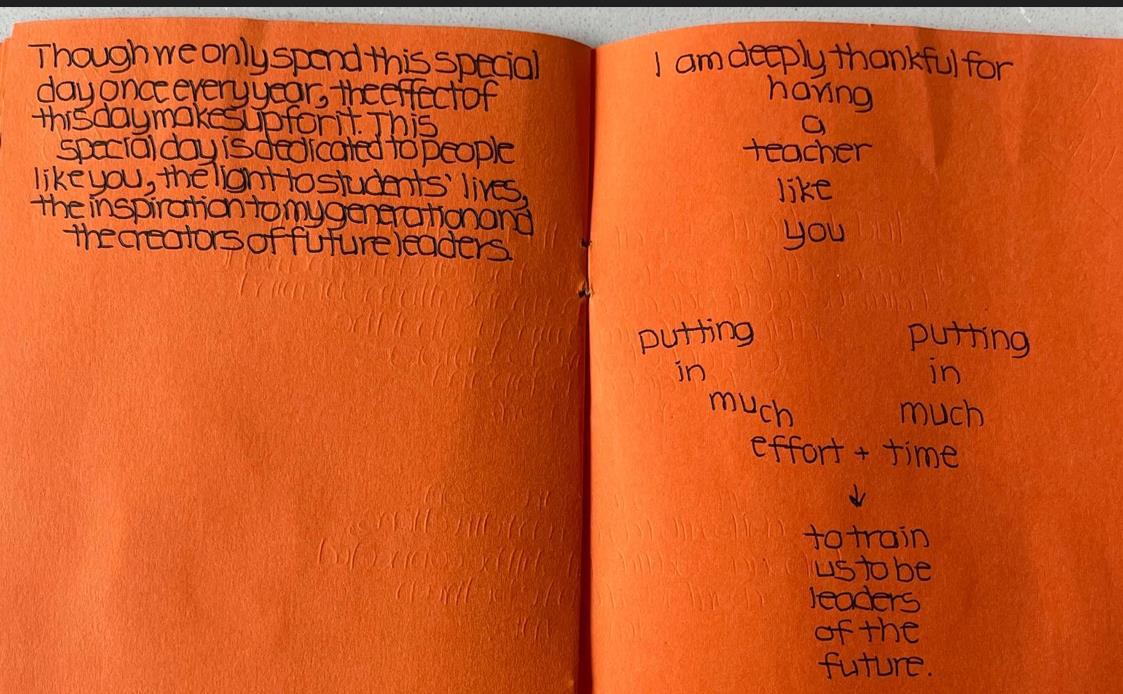 Though we only spend this special
day once every year, the effect of
this day makes up for it. This
special day is dedicated to people
like you, the light to students' lives,
the inspiration to my generation and
the creators of future leaders.
I am deeply thankful for
having
a
teacher
like
you
putting putting
in in
much much
effort + time
↓
to train
us to be
leaders
of the
future.